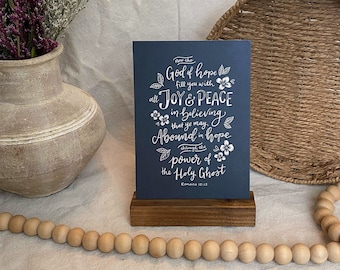 now the
God of hope
fill you with
all JOY & PEACE
in believing
that ye may
Abound in hope
through the
power of
the Holy Ghost
Romans 15:13